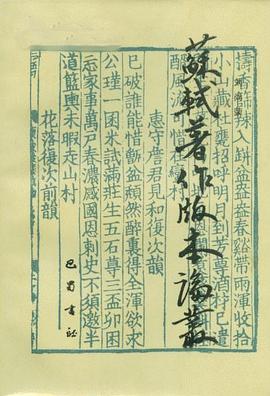 蘇軾著作版本論叢
巴蜀書社
擣香篩辣入缾盆盎盎春谿帶雨渾收拾
小山藏社甕招呼明月到芳尊酒材已遺
醒風流
惠守詹君見和復次韻
已破誰能惜甑盆頹然醉裏得全渾欲求
公瑾一囷米試滿莊生五石尊三盃卯困
忘家事萬戶春濃感國恩刺史不須邀半
道籃輿未暇走山村
花落復次前韻